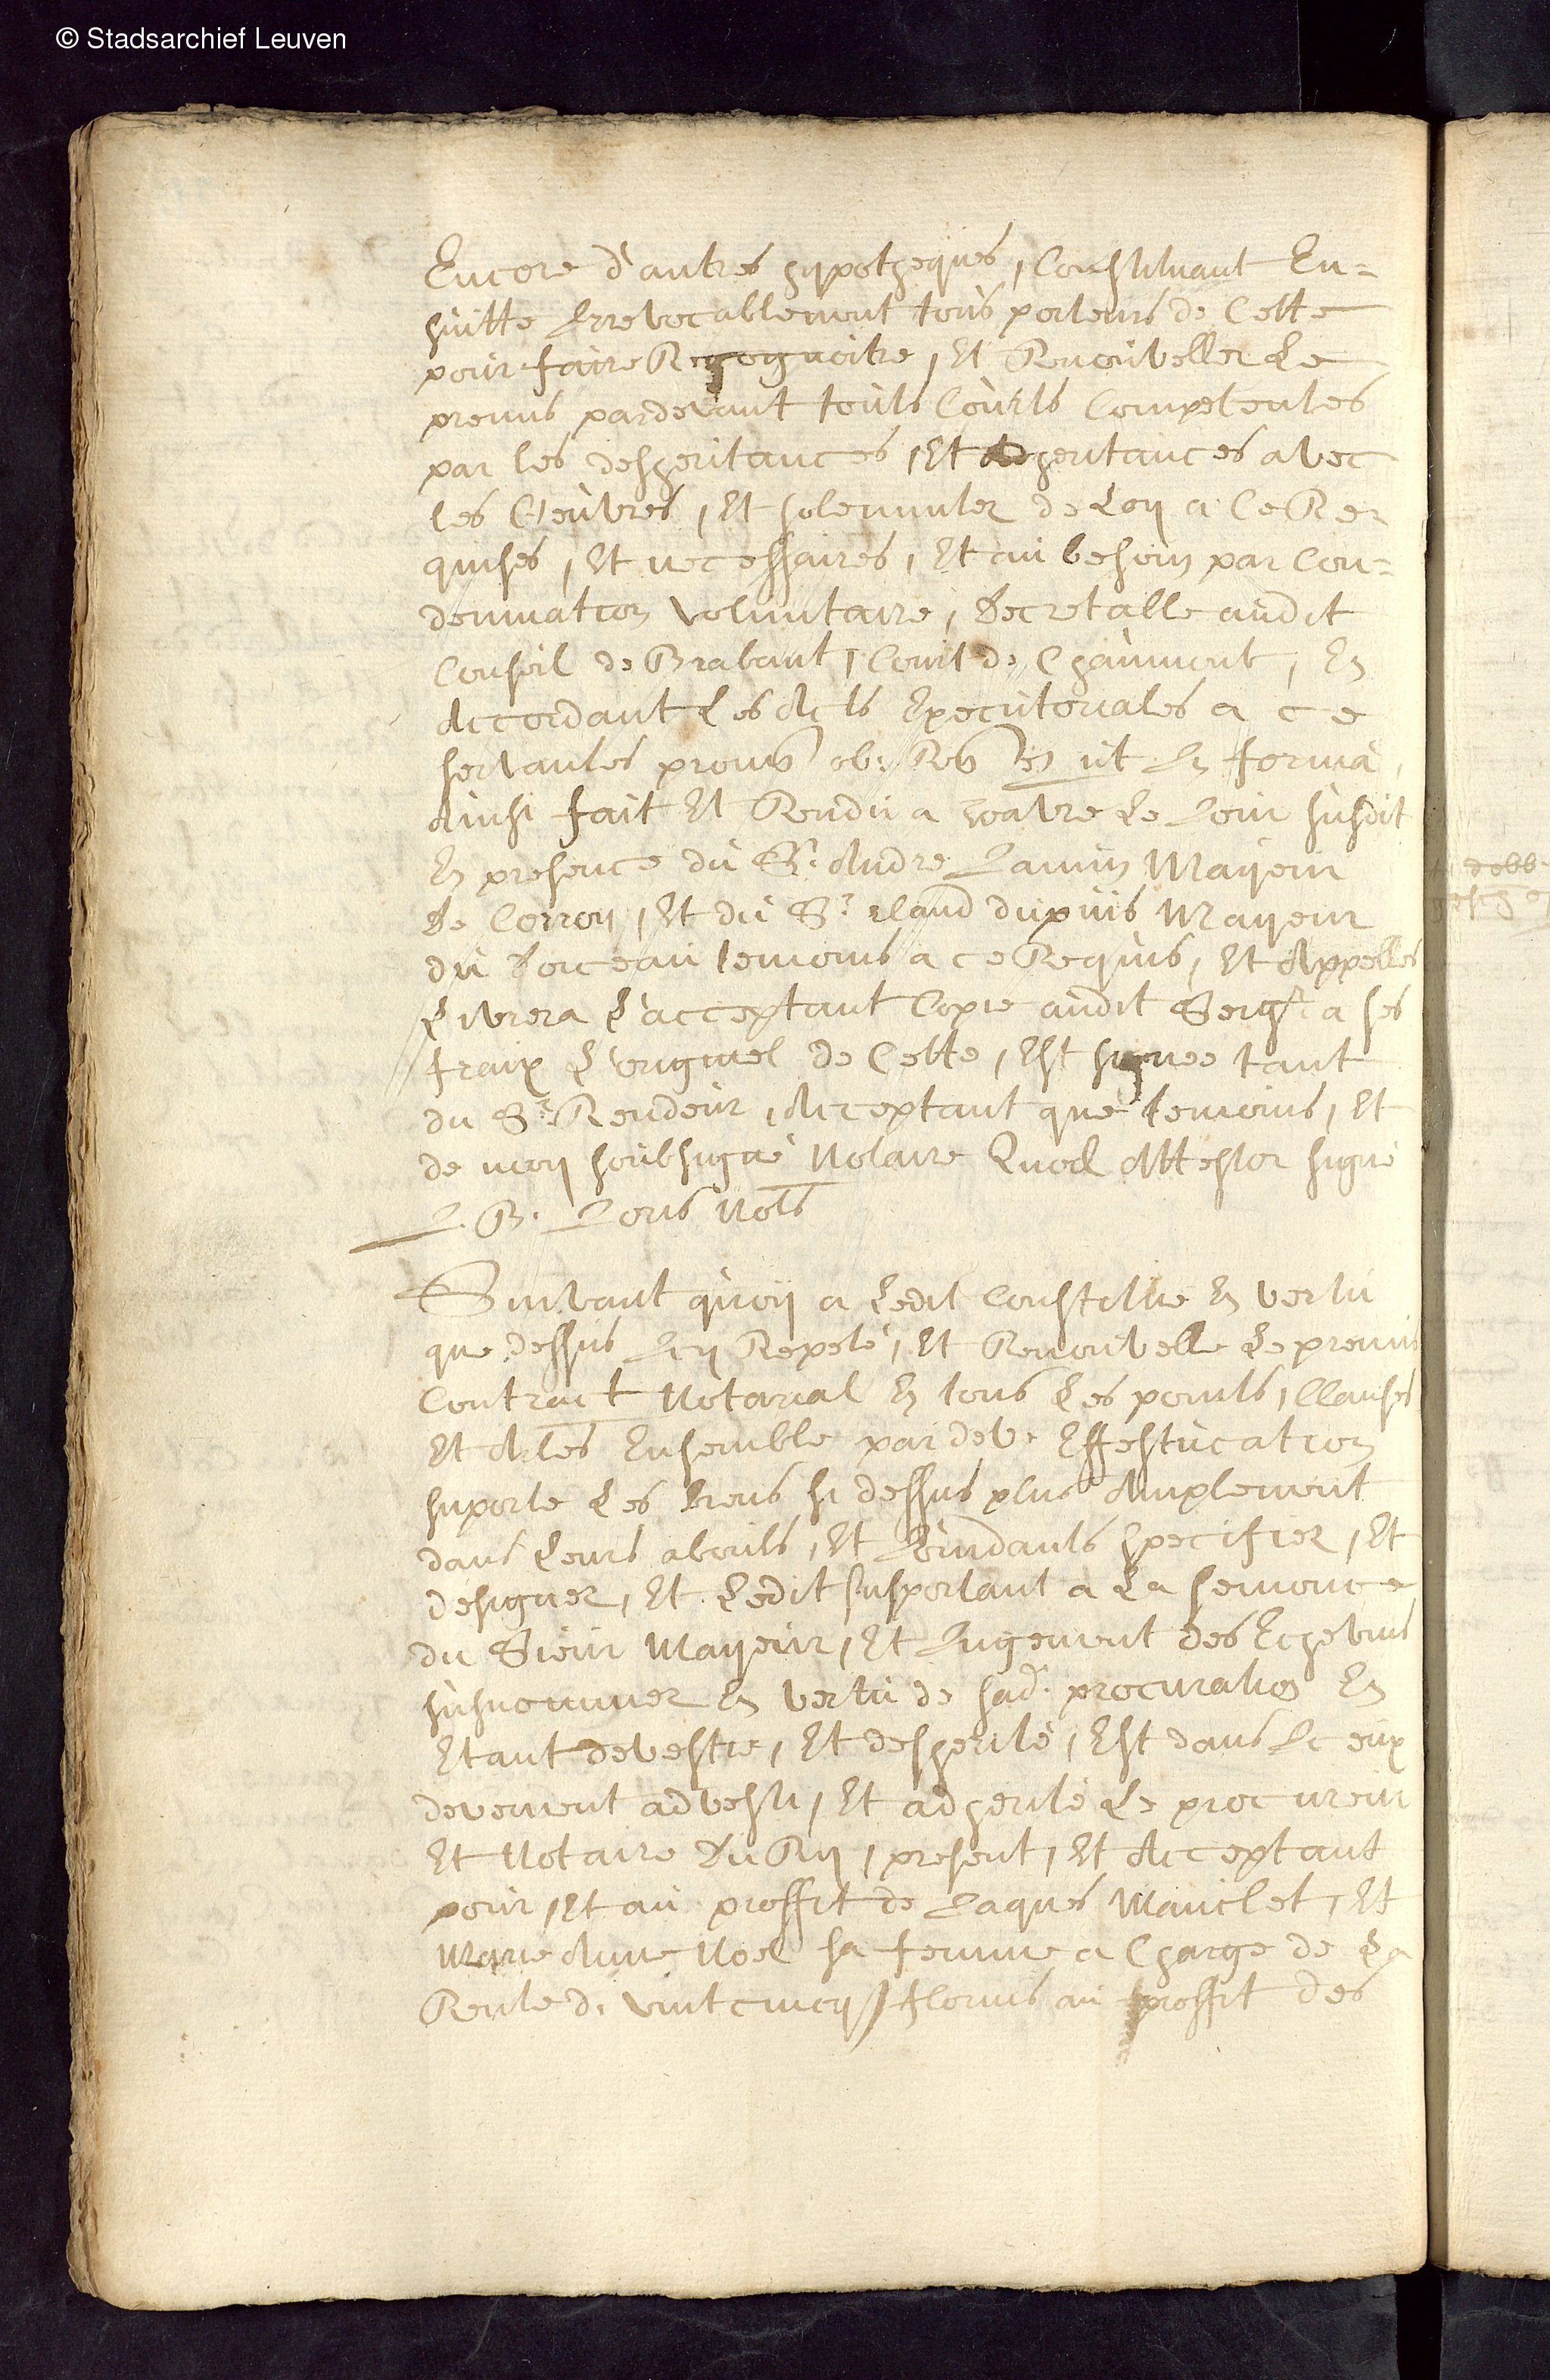 © Stadsarchief Leuven
Encore d'autres hypotheques, Constituant En=
suitte Irrevocablement tous porteurs de Cette
pour faire Recognoitre, Et Renouveller Le
premis pardevant touts Courts Competentes
par les desheritances, Et Adheritances avec
les Oeuvres, Et solemnitez de Loy a Ce Re-
quises, Et necessaires, Et au besoin par Con=
demnation voluntaire, Decretalle audit
Conseil de Brabant, Court de Chaumont, En
Accordant Les Acts Executoriales a ce
servantes prom ob: en ut In forma,
Ainsi fait Et Rendu a wavre Le Jour susdit
En presence du Sr. Andre Lannin Mayeur
De Corroy, Et du Sr. Claud dupuis Mayeur
du temoins a ce Requis, Et Appelles
Livrera L'acceptant Copie audit Seigr. a ses
fraix L'originel de Cette, Est signee tant
du Sr. Rendeur, Acceptant que temoins, Et
de moy soubsigné Notaire Quod Attestor signé
L. B. Lous Nots
Suivant quoy a Ledit Constitue En vertu
que dessus Icy Repeté, Et Renouvelle Le premis
Contract Notarial En tous Les points, Clauses
Et Articles Ensemble par dev. Effestucation
suporte Les biens si dessus plus Amplement
dans Leurs abouts, Et Joindants specifiez, Et
designez, Et Ledit susportant a La semonce
du Sieur Mayeur, Et Jugement des Echevins
susnommez En vertu de sad. procuration En
Etant devestie, Et desherité, Est dans Iceux
devement advesti, Et adherité Le procureur
Et Notaire Du Ry, present, Et Acceptant
pour, Et au proffit de Jaques Mauclet, Et
Marie Anne Noel sa femme a Charge de La
Rente de vint cincq florins au proffit des